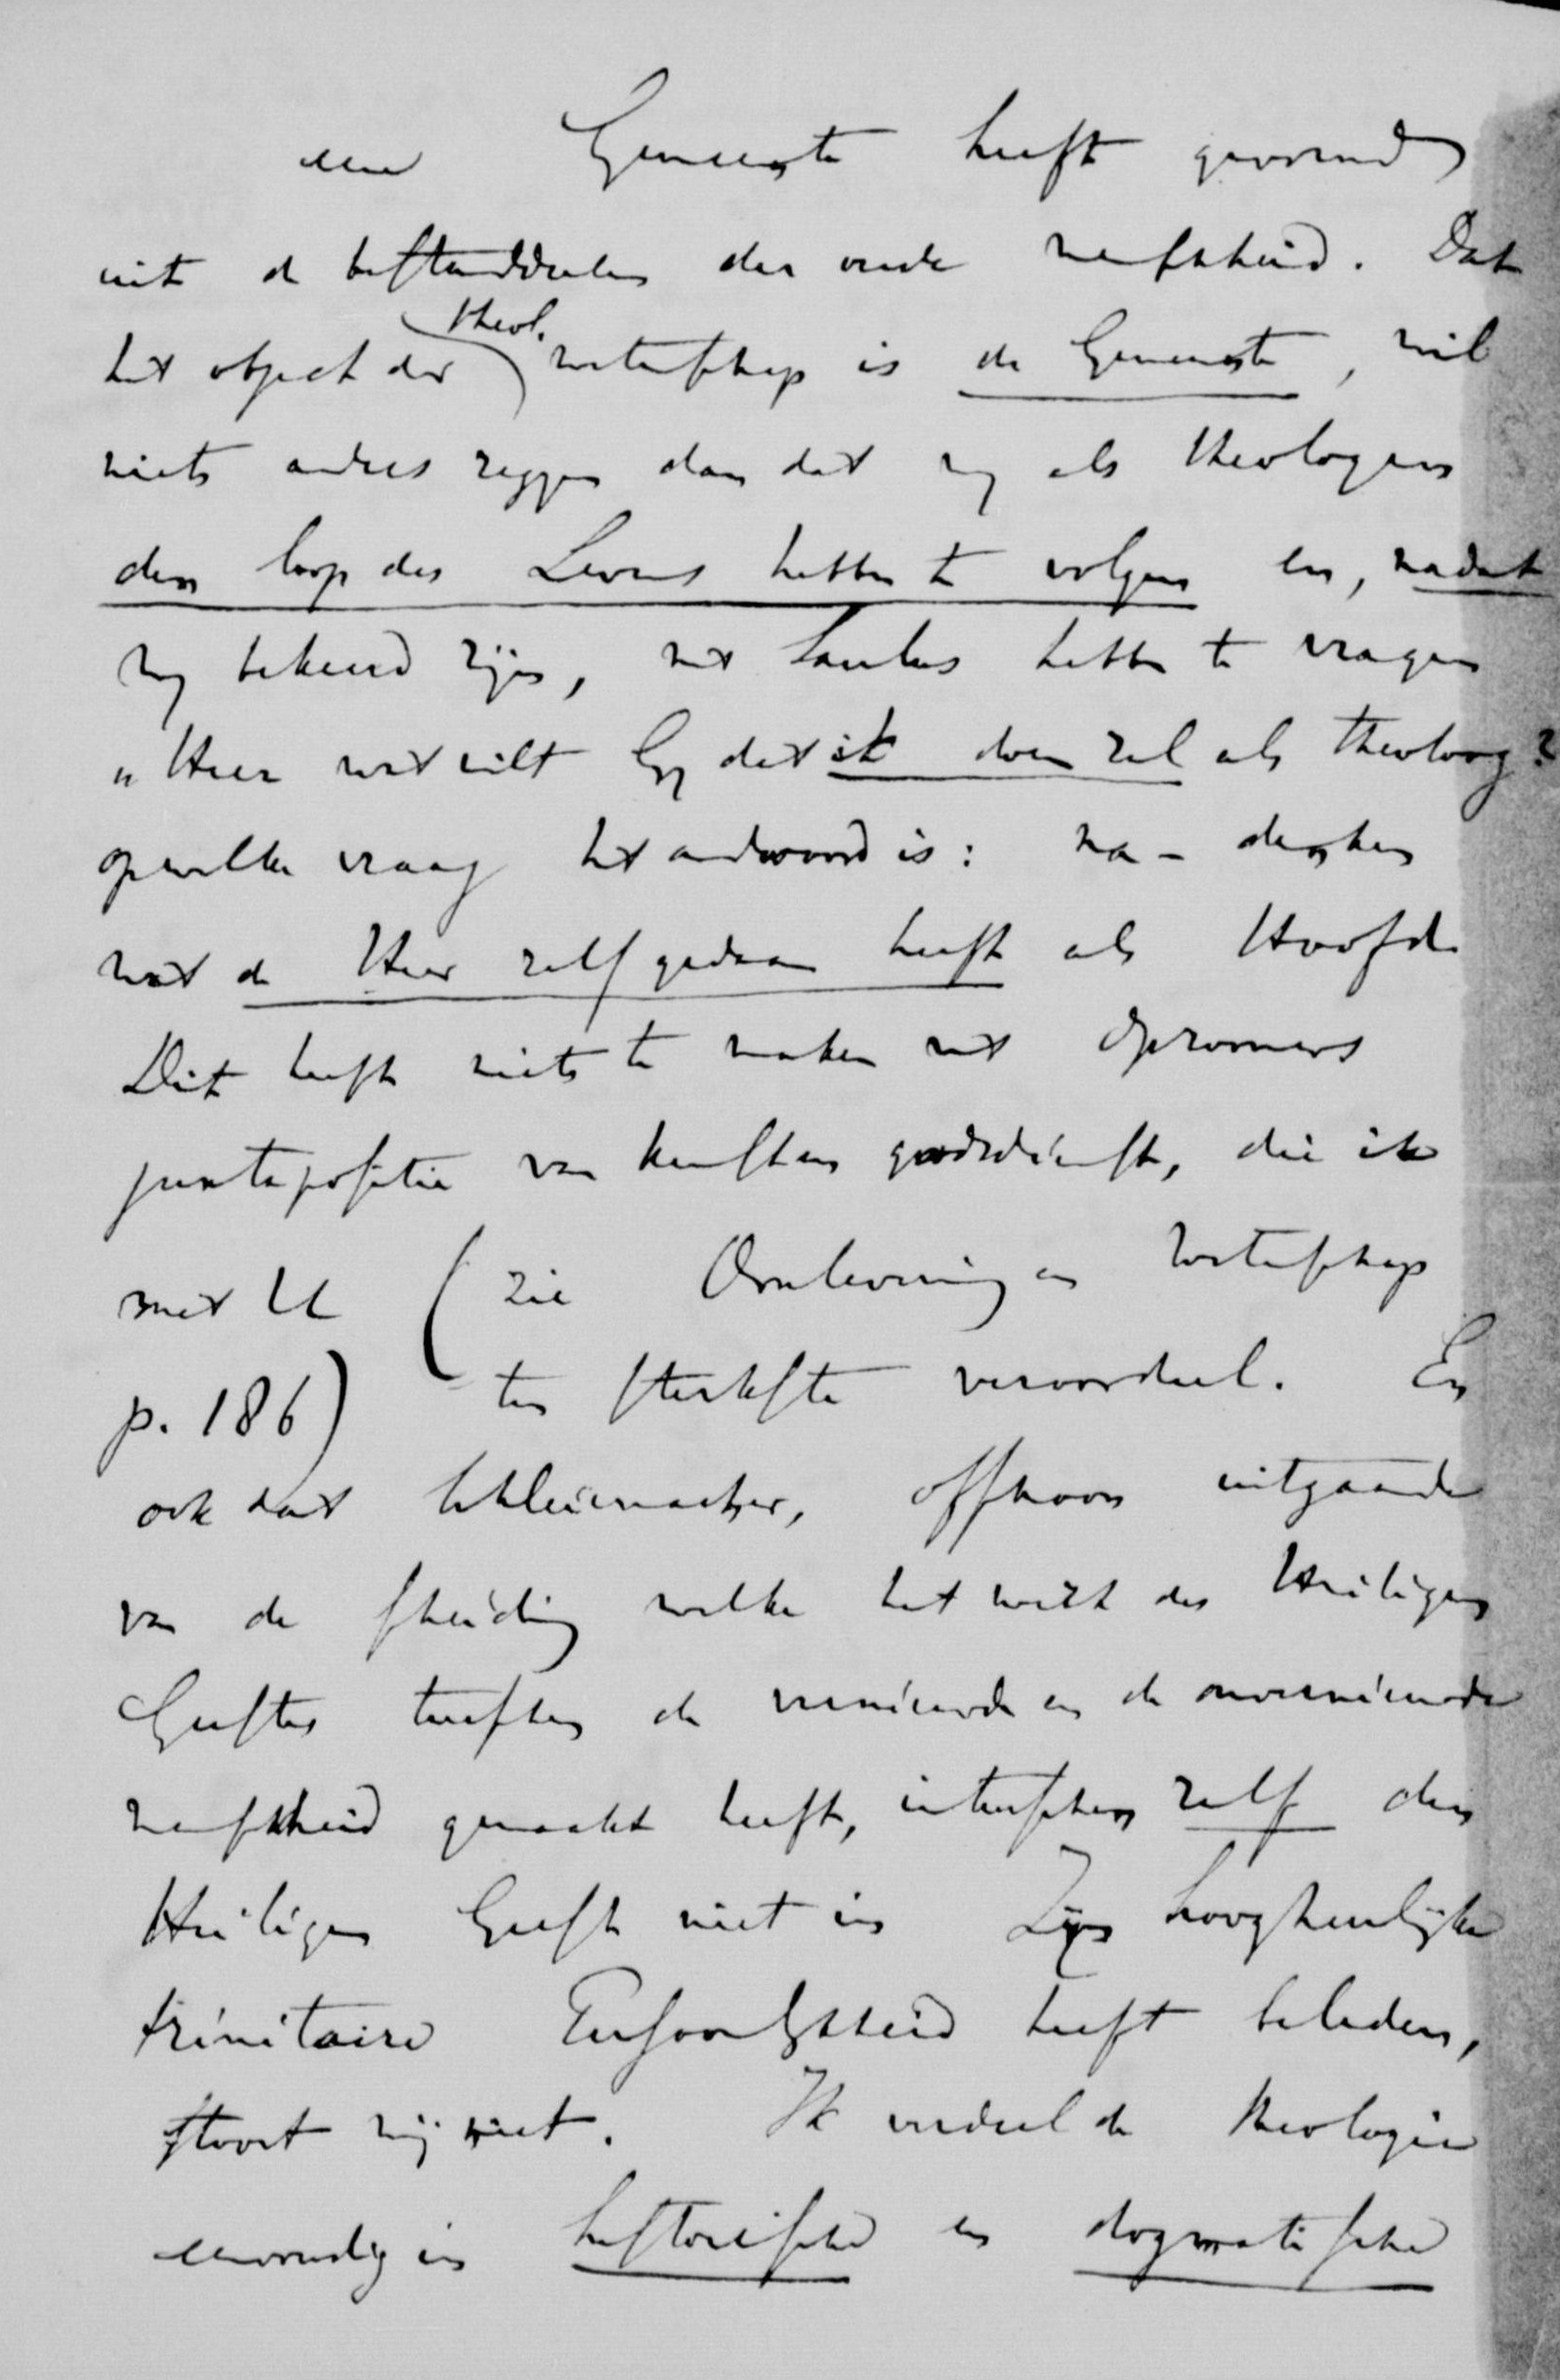 eene Gemeente heeft gevormd
uit de bestanddeelen der oude menschheid. Dat
het object der theol. wetenschap is de Gemeente, wil
niets anders zeggen dan dat wij als theologen
den loop des Levens hebben te volgen en, nadat
wij bekeerd zijn, met Saulus hebben te vragen
„Heer wat wilt Gij dat ik doen zal als theoloog?
op welke vraag het andwoord is: na-denken
wat de Heer zelf gedaan heeft als Hoofd
Dit heeft niets te maken met Opzoomers
juxtapositie van kunst en godsdienst, die ik
met U (zie Omlevering en Wetenschap
p. 186) ten sterkste veroordeel. En
ook dat Schleiermacher, ofschoon uitgaande
van de scheiding welke het werk des Heiligen
Geestes tusschen de vernieuwde en de onvernieuwde
menschheid gemaakt heeft, intusschen zelf den
Heiligen Geest niet in Zijn hoogheerlijke
trinitaire Persoonlijkheid heeft beleden,
stoort mij niet. Ik verdeel de theologie
eenvoudig in historische en dogmatische